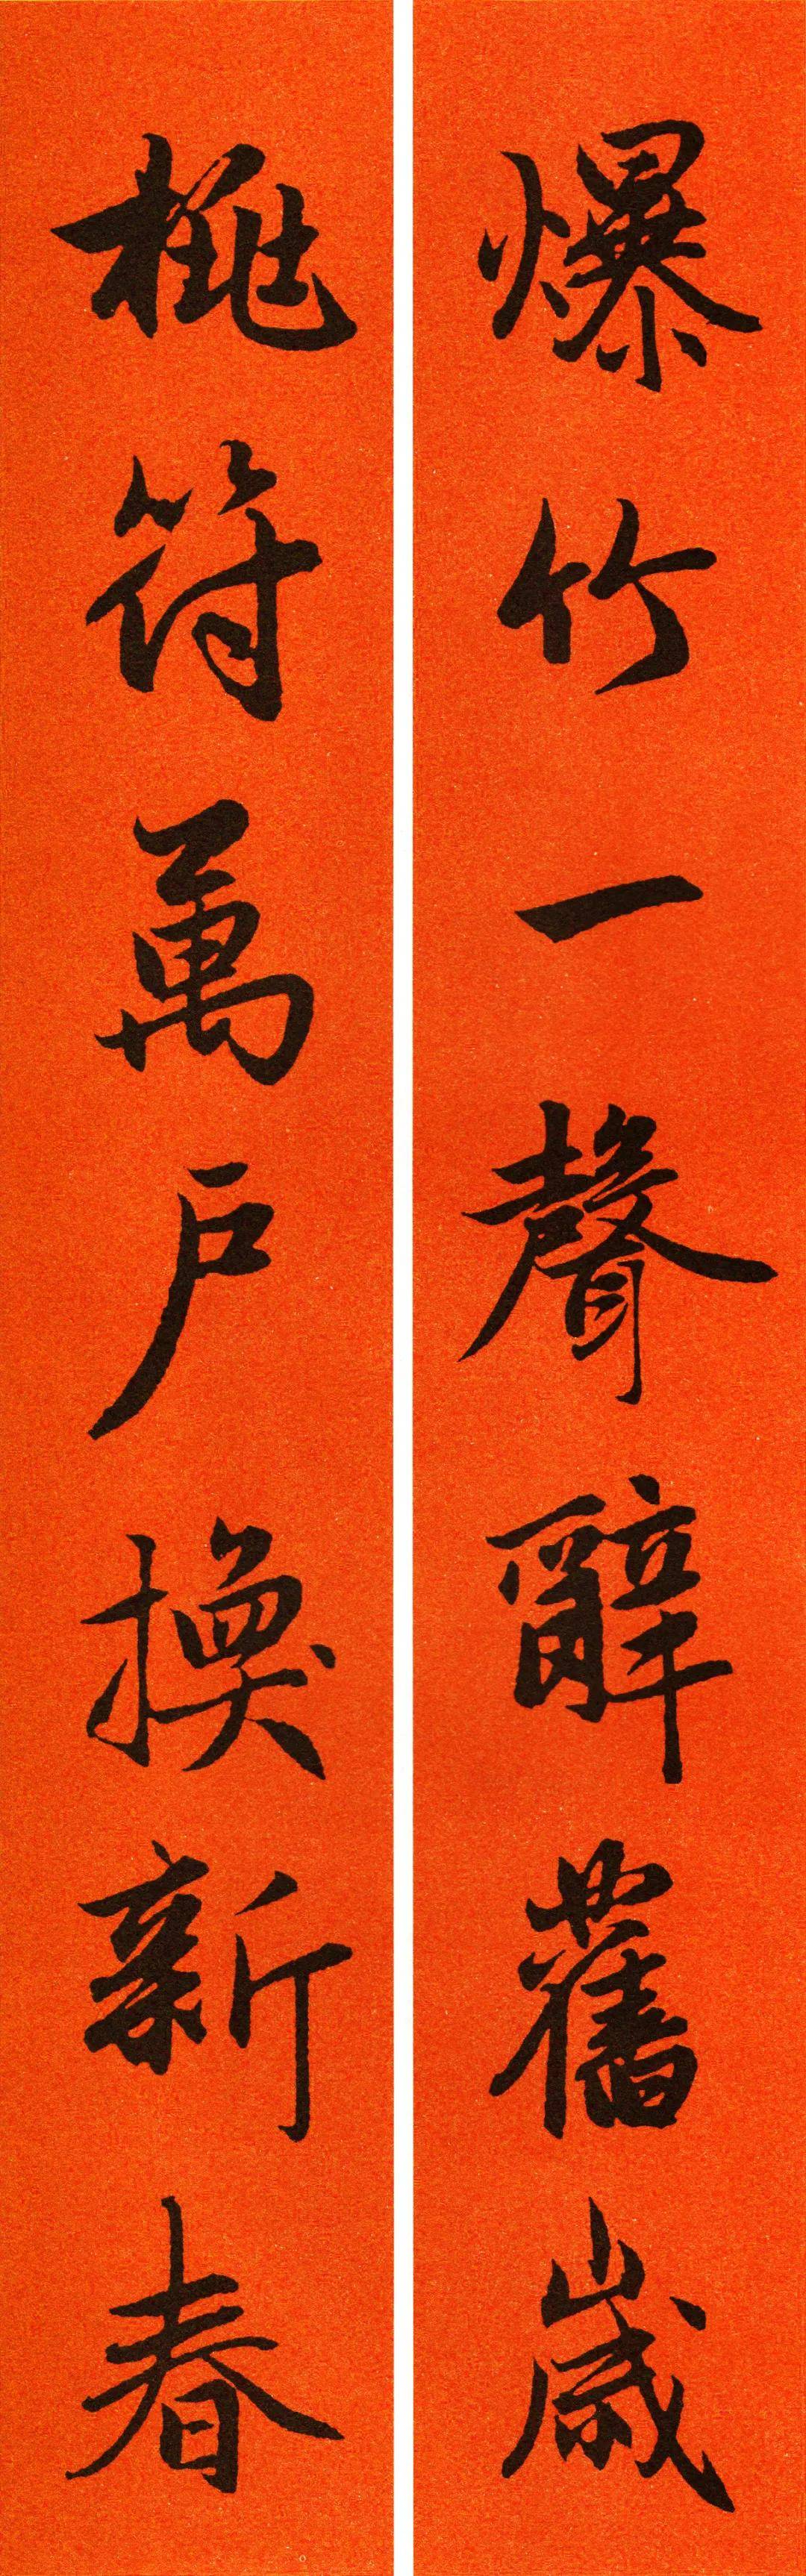 爆竹一聲辭舊歲
桃符萬户換新春